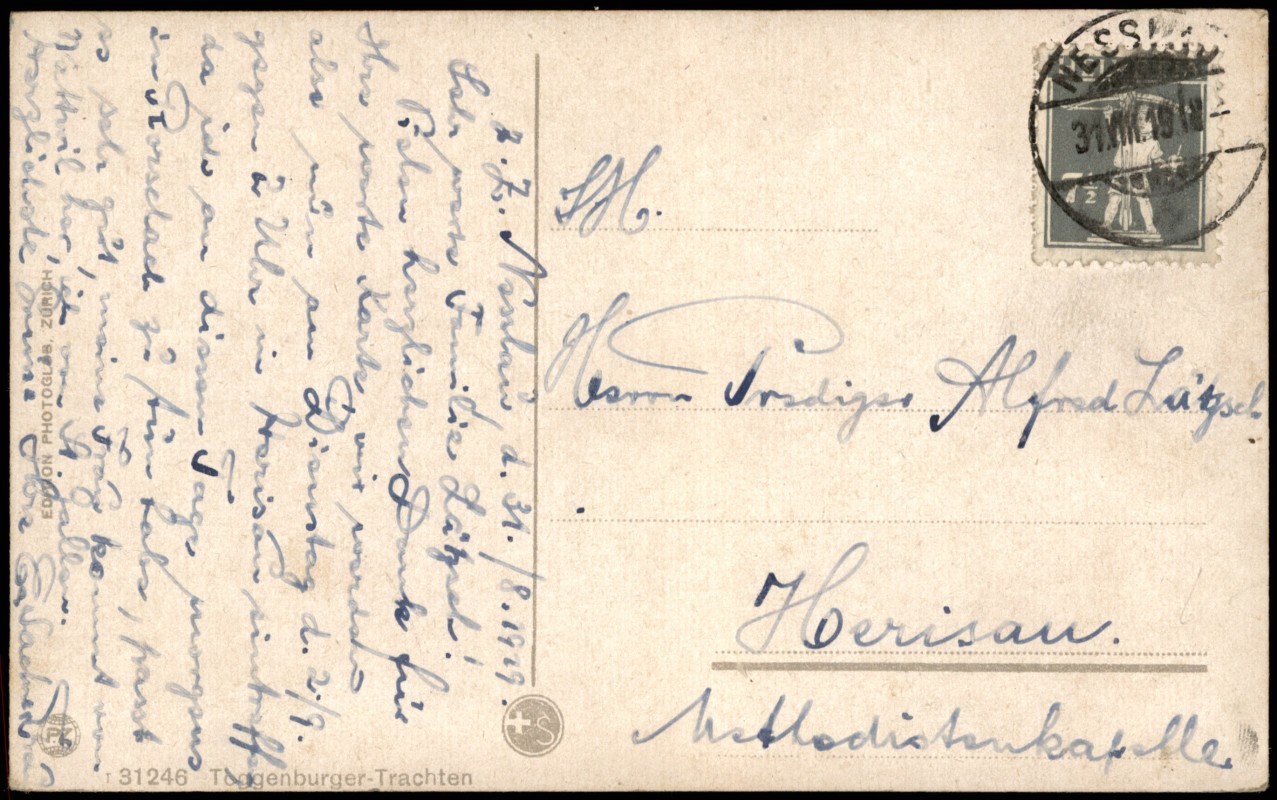 z. Z. Nesslau, d. 31./8. 1919.
Sehr werte Familie Lätzsch!
Vielen herzlichen Dank für
Ihre werte Karte, wir werden
also nun am Dienstag d. 2./9.
gegen 2 Uhr in Herisau eintreffen
da ich an diesem Tage morgens
in Rorschach zu tun habe, passt
es sehr gut, meine Frau kommt von
Wattwil her, ich von St. Gallen.
Herzliche Ihre
S.H.
Herrn Prediger Alfred Lätzsch
Herisau.
Methodistenkapelle.
NESSLAU
31.VIII.19
7½
EDITION PHOTOGLOB, ZÜRICH
31246 Toggenburger-Trachten